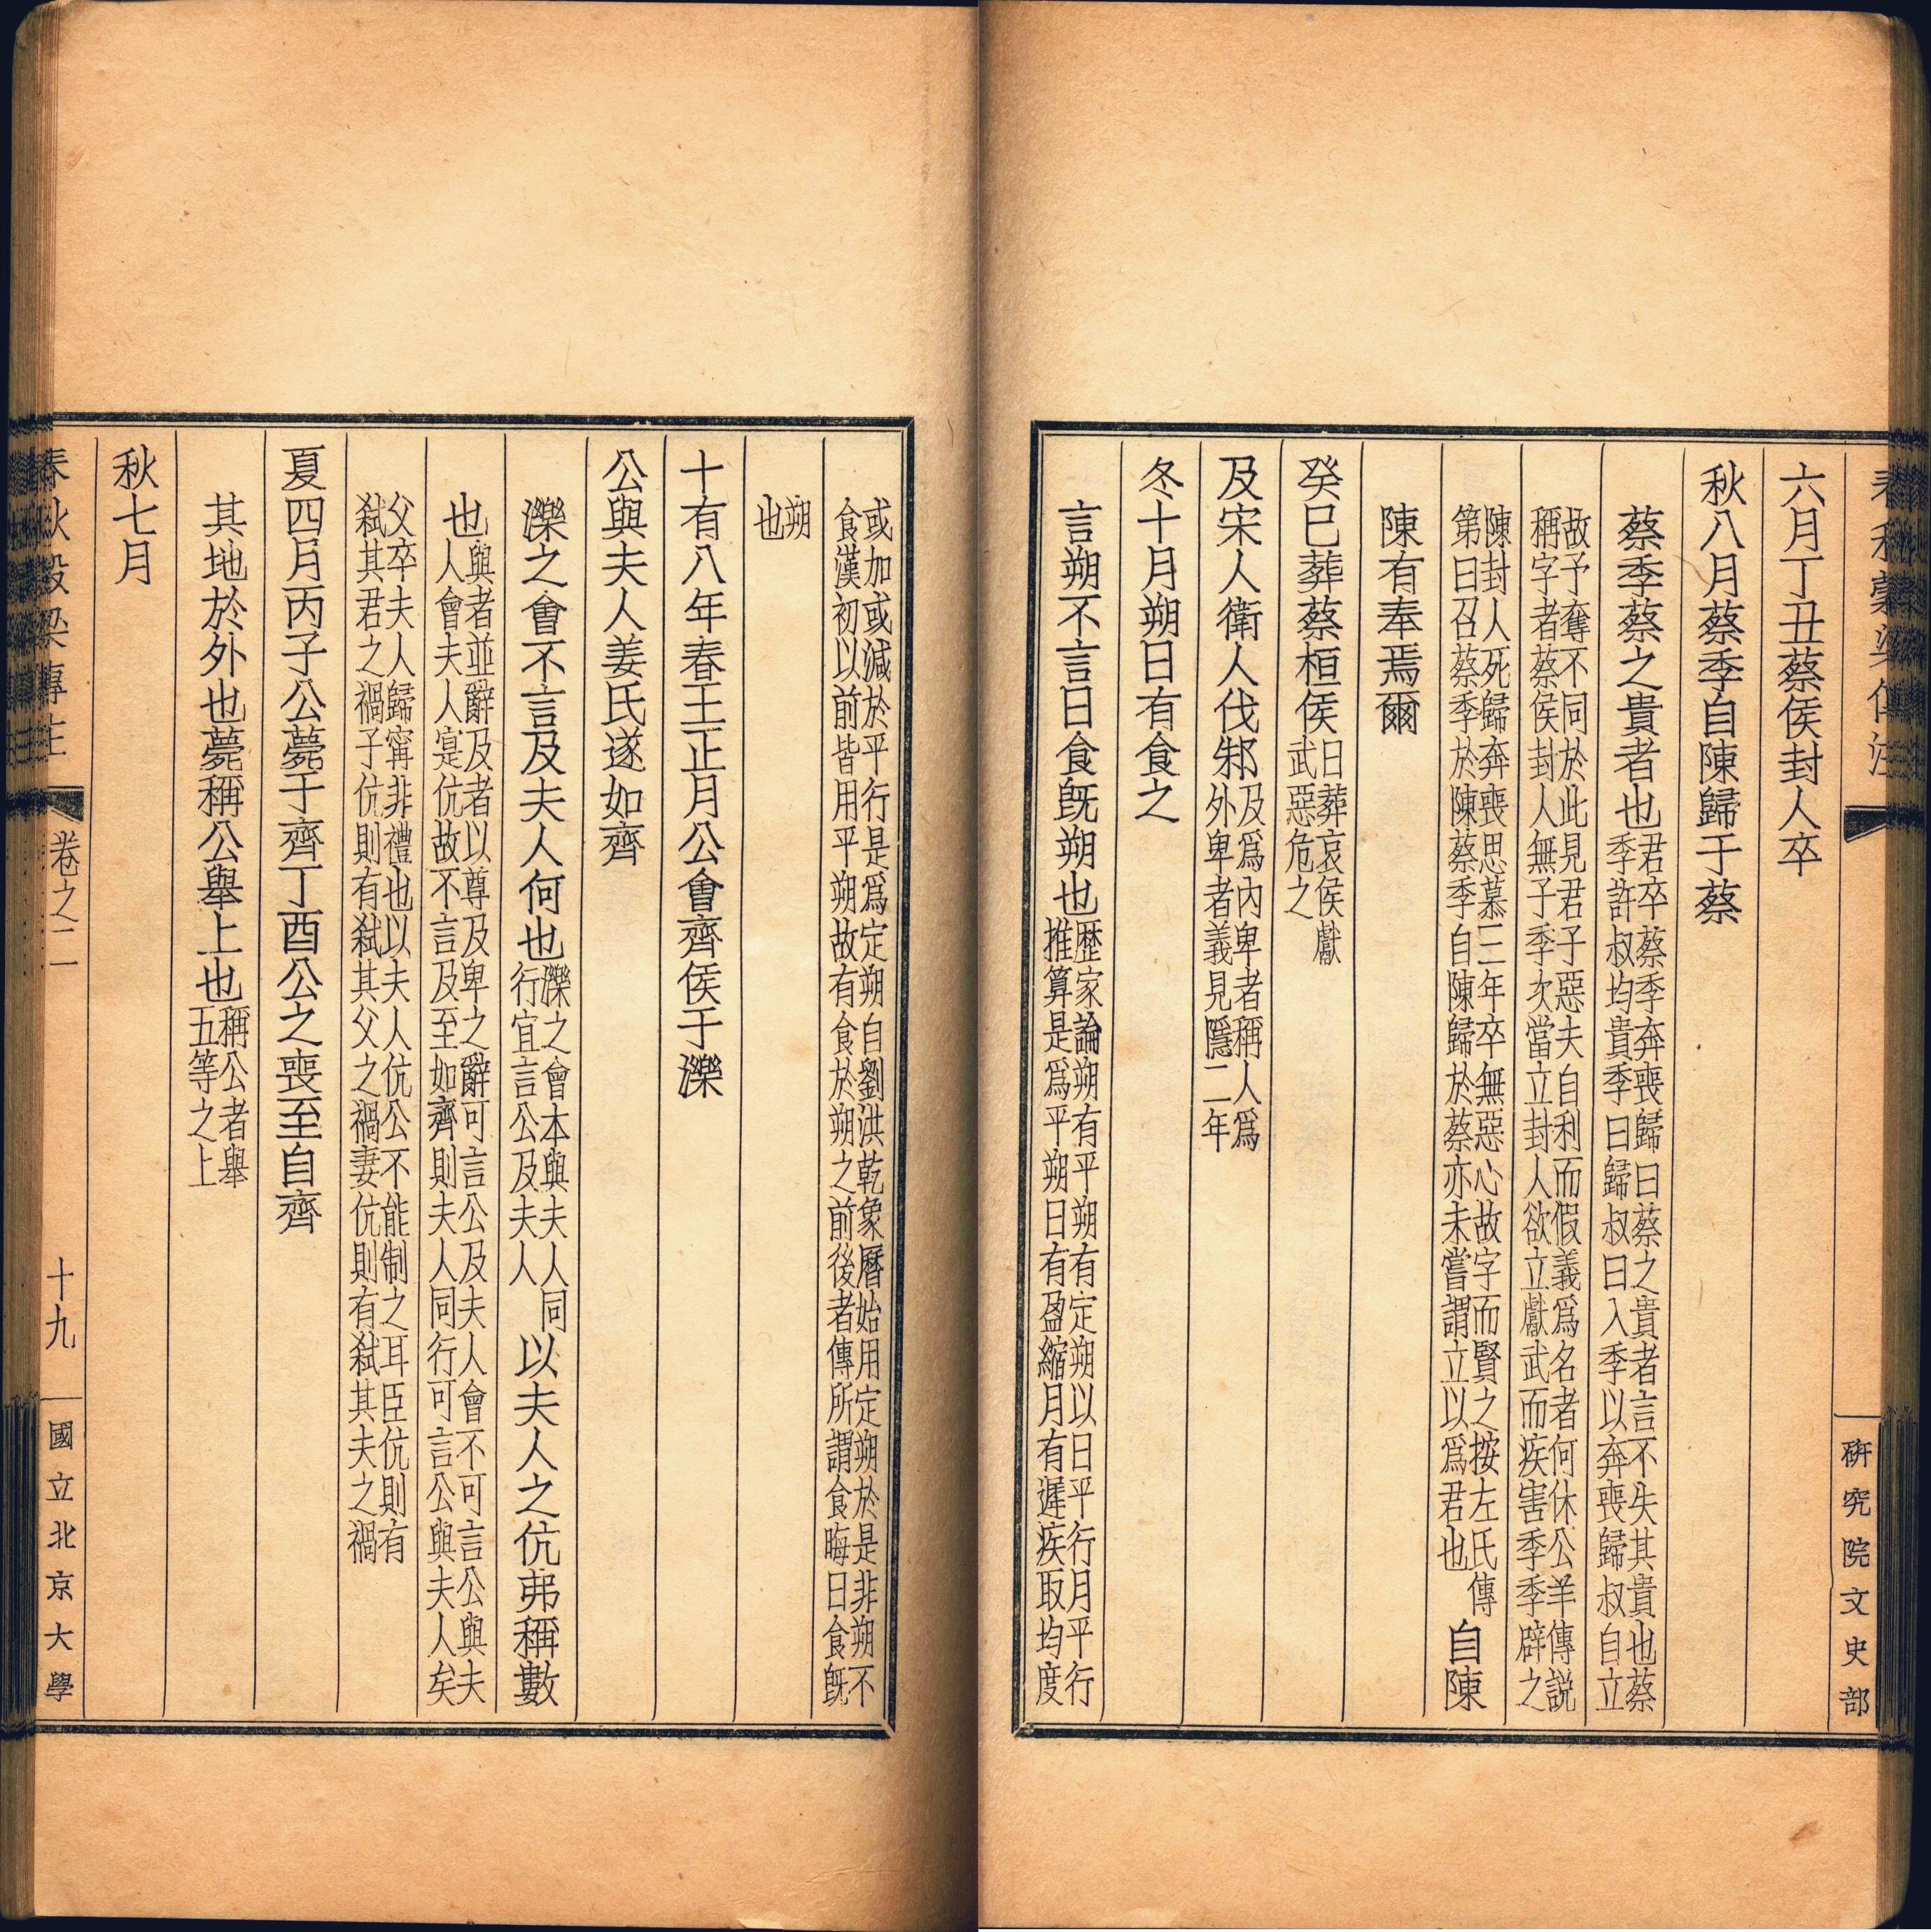 春秋穀梁傳注
研究院文史部
六月丁丑蔡侯封人卒
秋八月蔡季自陳歸于蔡
蔡季蔡之貴者也君卒蔡季奔喪歸曰蔡之貴者言不失其貴也蔡季許叔均貴季曰歸叔曰入季以奔喪歸叔自立
故予奪不同於此見君子惡夫自利而假義爲名者何休公羊傳說稱字者蔡侯封人無子季次當立封人欲立獻武而疾害季季辟之
陳封人死歸奔喪思慕三年卒無惡心故字而賢之按左氏傳第曰召蔡季於陳蔡季自陳歸於蔡亦未嘗謂立以爲君也自陳
陳有奉焉爾
癸巳葬蔡桓侯日葬哀侯獻武惡危之
及宋人衛人伐邾及爲內卑者稱人爲外卑者義見隱二年
冬十月朔日有食之
言朔不言日食旣朔也歷家論朔有平朔有定朔以日平行月平行推算是爲平朔日有盈縮月有遲疾取均度
或加或減於平行是爲定朔自劉洪乾象曆始用定朔於是非朔不食漢初以前皆用平朔故有食於朔之前後者傳所謂食晦日食旣
朔也
十有八年春王正月公會齊侯于濼
公與夫人姜氏遂如齊
濼之會不言及夫人何也濼之會本與夫人同行宜言公及夫人以夫人之伉弗稱數
也與者並辭及者以尊及卑之辭可言公及夫人會不可言公與夫人會夫人寔伉故不言及至如齊則夫人同行可言公與夫人矣
父卒夫人歸寗非禮也以夫人伉公不能制之耳臣伉則有弒其君之禍子伉則有弒其父之禍妻伉則有弒其夫之禍
夏四月丙子公薨于齊丁酉公之喪至自齊
其地於外也薨稱公舉上也稱公者舉五等之上
秋七月
春秋穀梁傳注 卷之二 十九 國立北京大學